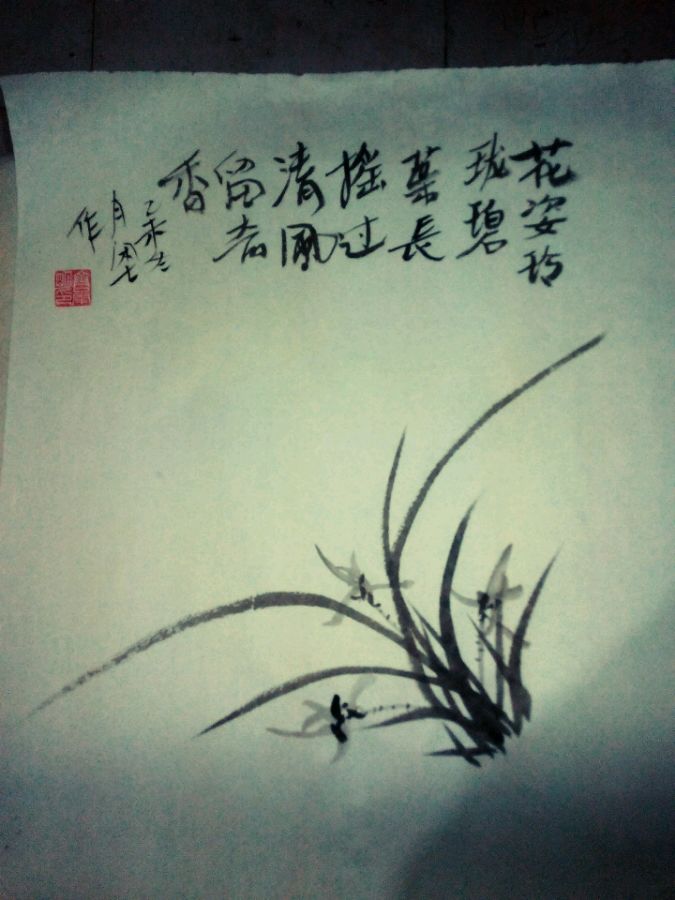 花姿玲
珑碧
葉長
摇过
清風
留
香
乙未
月
作